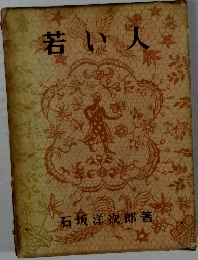 若い人
石坂洋次郎著